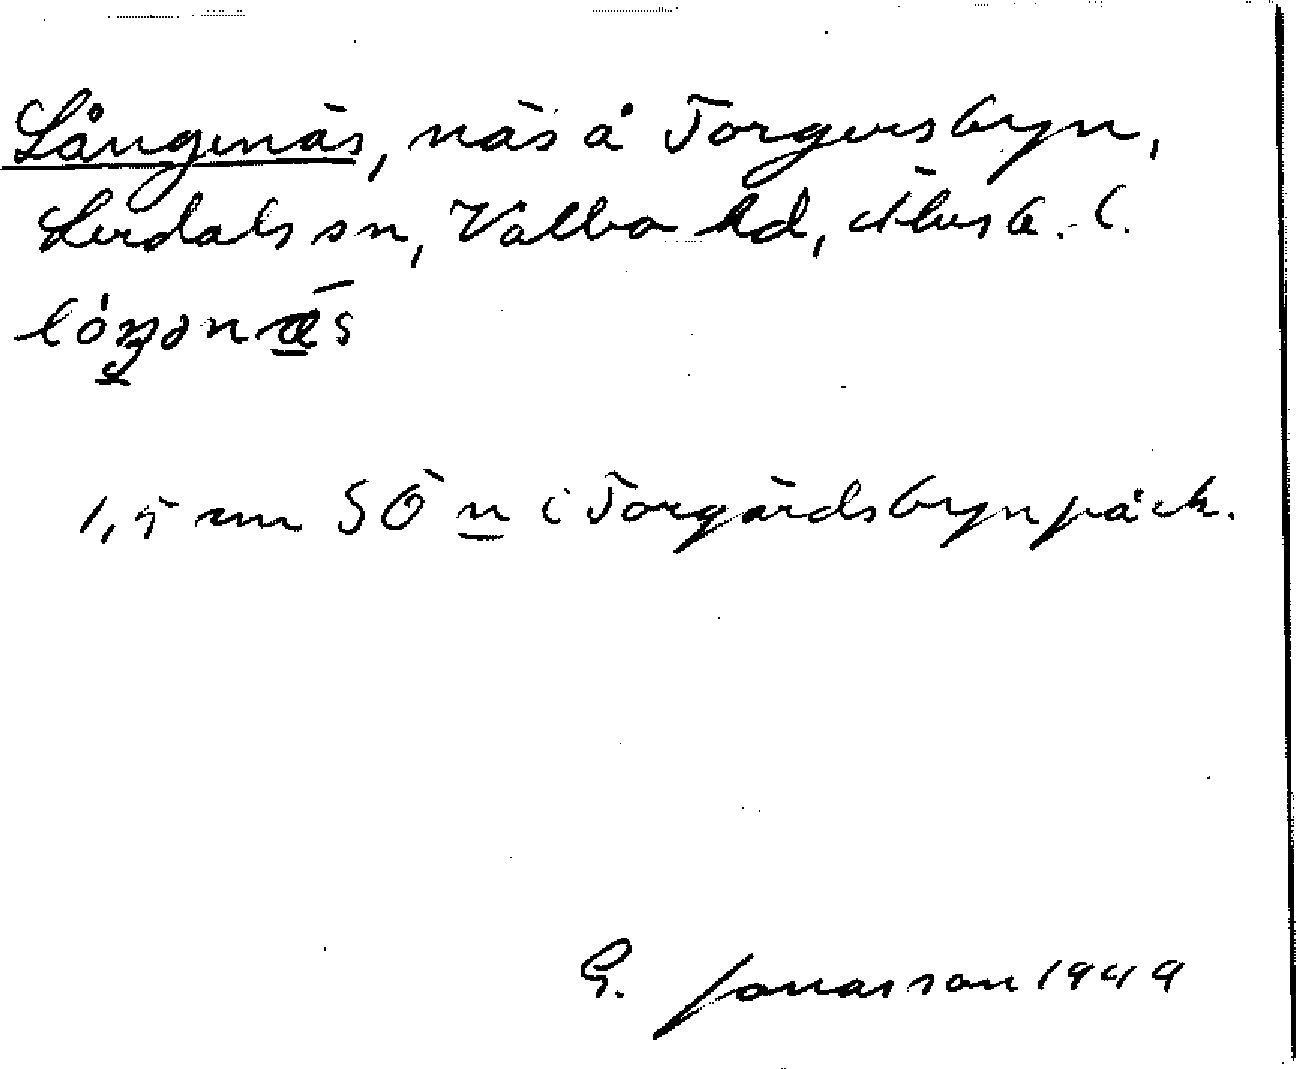 Långenäs, näs å Torgersbyn,
Lerdals sn, Valbo hd, Älvsb. l.
lóŋənæ̀s
1,5 mm SÖ n i Torgärdsbyn på ek.
G. Jonasson 1949